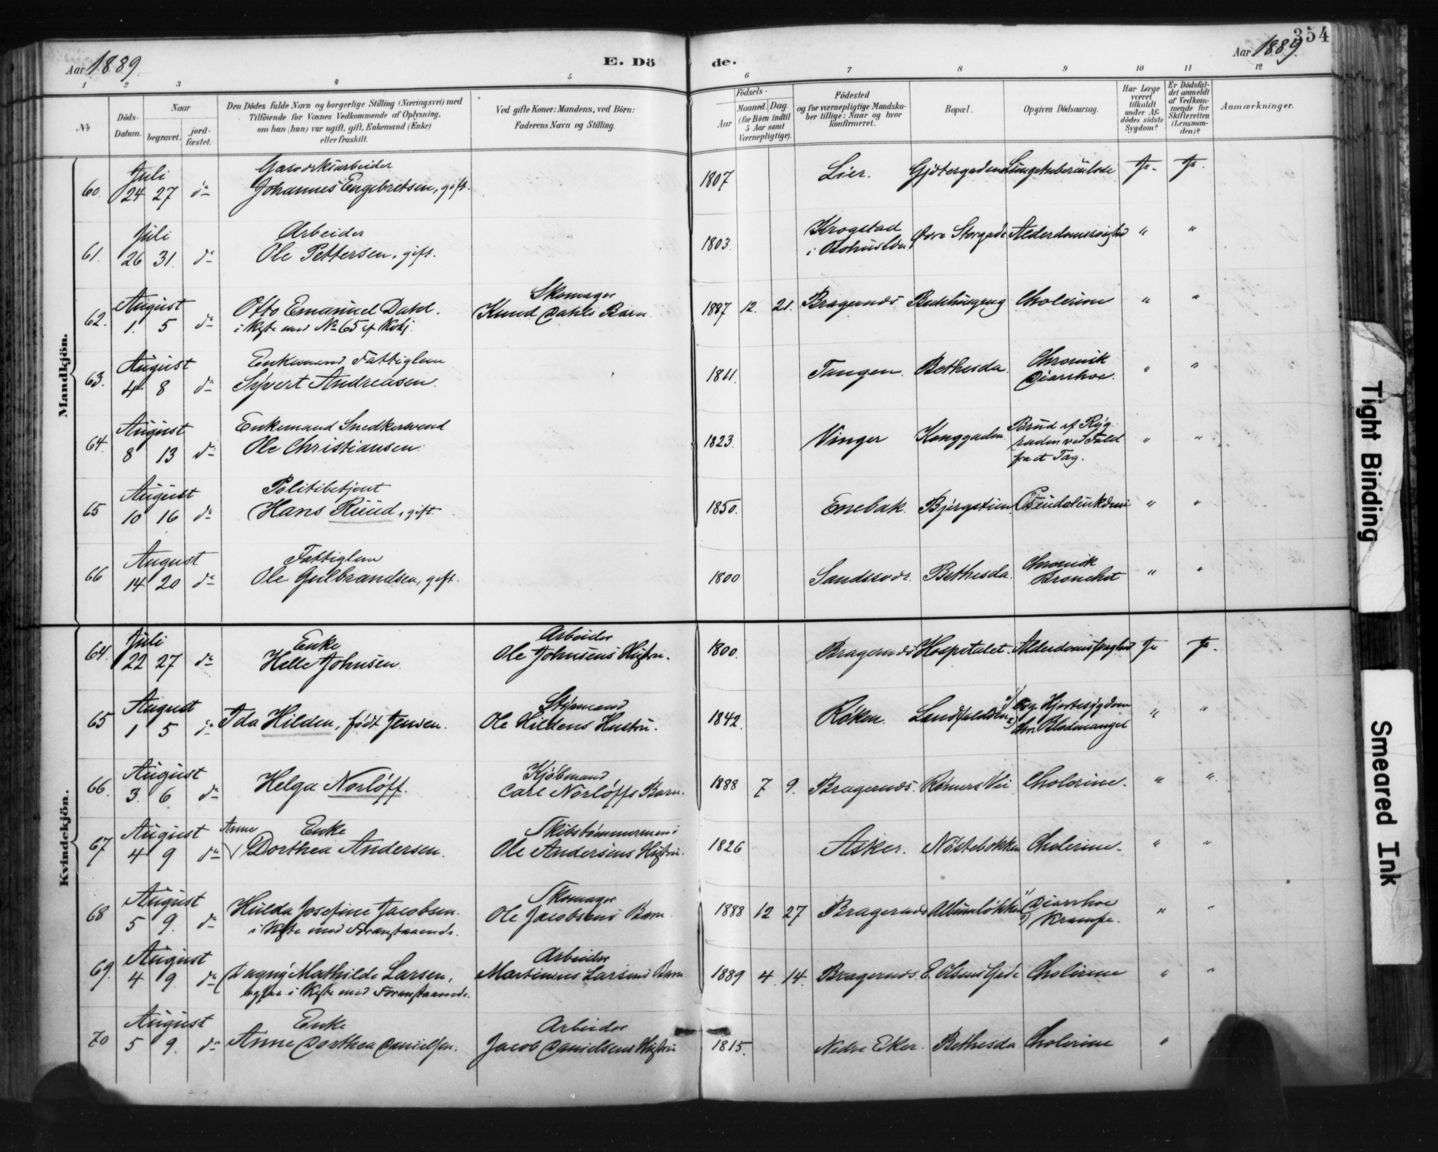 354
Aar 1889.
E. Dö
de.
Aar 1889.
1 2 3 4 5 6 7 8 9 10 11 12
№
Döds-
Datum.
Naar
begravet.
jord-
fæstet.
Den Dödes fulde Navn og borgerlige Stilling (Næringsvei) med
Tilföiende for Voxnes Vedkommende af Oplysning,
om han (hun) var ugift, gift, Enkemand (Enke)
eller fraskilt.
Ved gifte Koner: Mandens, ved Börn:
Faderens Navn og Stilling.
Födsels-
Aar
Maaned. Dag
(for Börn indtil
5 Aar samt
Værnepligtige).
Födested
og for værnepligtige Mandska-
ber tillige: Naar og hvor
konfirmeret.
Bopæl.
Opgiven Dödsaarsag.
Har Læge
været
tilkaldt
under Af-
dödes sidste
Sygdom?
Er Dödsfal-
det anmeldt
af Vedkom-
mende for
Skifteretten
(Lensman-
den)?
Anmærkninger.
Mandkjön.
60. Juli 24 27 do
Johannes Engebretsen, gift. 1807 Lier. Ja. Ja.
61. Juli 26 31. do
Arbeider
Ole Pettersen, gift. 1803. Krogstad
i Bohuslen Övre Storgade " "
62. August 1. 5 do
Otto Emanuel Dahl.
i Kiste med № 65 af Kvkj.
Skomager
Knud Dahls Barn 1887 12. 21. Bragernæs Cholerine " "
63. August 4 8 do
Enkemand Fattiglem
Syvert Andreasen. 1811. Tangen. Bethesda. Chronisk
Diarrhoe. " "
64. August 8 13 do
Enkemand Snedkersvend
Ole Christiansen. 1823 Vinger Konggaden Brud af Ryg
raden ved Fald
fra et Tag. " "
65 August 10 16 do
Politibetjent
Hans Ruud, gift 1850. Enebak. " "
66 August 14 20 do
Fattiglem
Ole Gulbrandsen, gift. 1800 Bethesda. Chronisk
Bronchit " "
Kvindekjön.
64. Juli 22 27 do
Enke
Helle Johnsen.
Arbeider
Ole Johnsens Hustru. 1800. Bragernæs Hospitalet. Ja Ja.
65 August 1 5 do
Ida Hilden, födt Jensen.
Styrmand
Ole Hildens Hustru. 1842. Röken. " "
66. August 3. 6. do
Helga Norlöff.
Kjöbmand
Carl Norlöffs Barn. 1888 7 9. Bragernæs. Cholerine. " "
67 August 4 9 do
Enke
Anne
Dorthea Andersen.
Ole Andersens Hustru 1826 Asker. Cholerine. " "
68 August 5 9. do
Hulda Josefine Jacobsen.
i Kiste med Foranstaaende.
Skomager
Ole Jacobsens Barn. 1888 12 27 Bragernæs Diarrhoe
Krampe. " "
69. August 4 9. do
Dagny Mathilde Larsen,
i Kiste med Foranstaaende.
Arbeider
Martinius Larsens Barn 1889 4. 14. Bragernæs Cholerine " "
70 August 5 9. do
Enke
Anne Dorthea Danielsen.
Arbeider
Jacob Danielsens Hustru 1815. Nedre Eker. Bethesda Cholerine "
Tight Binding
Smeared Ink